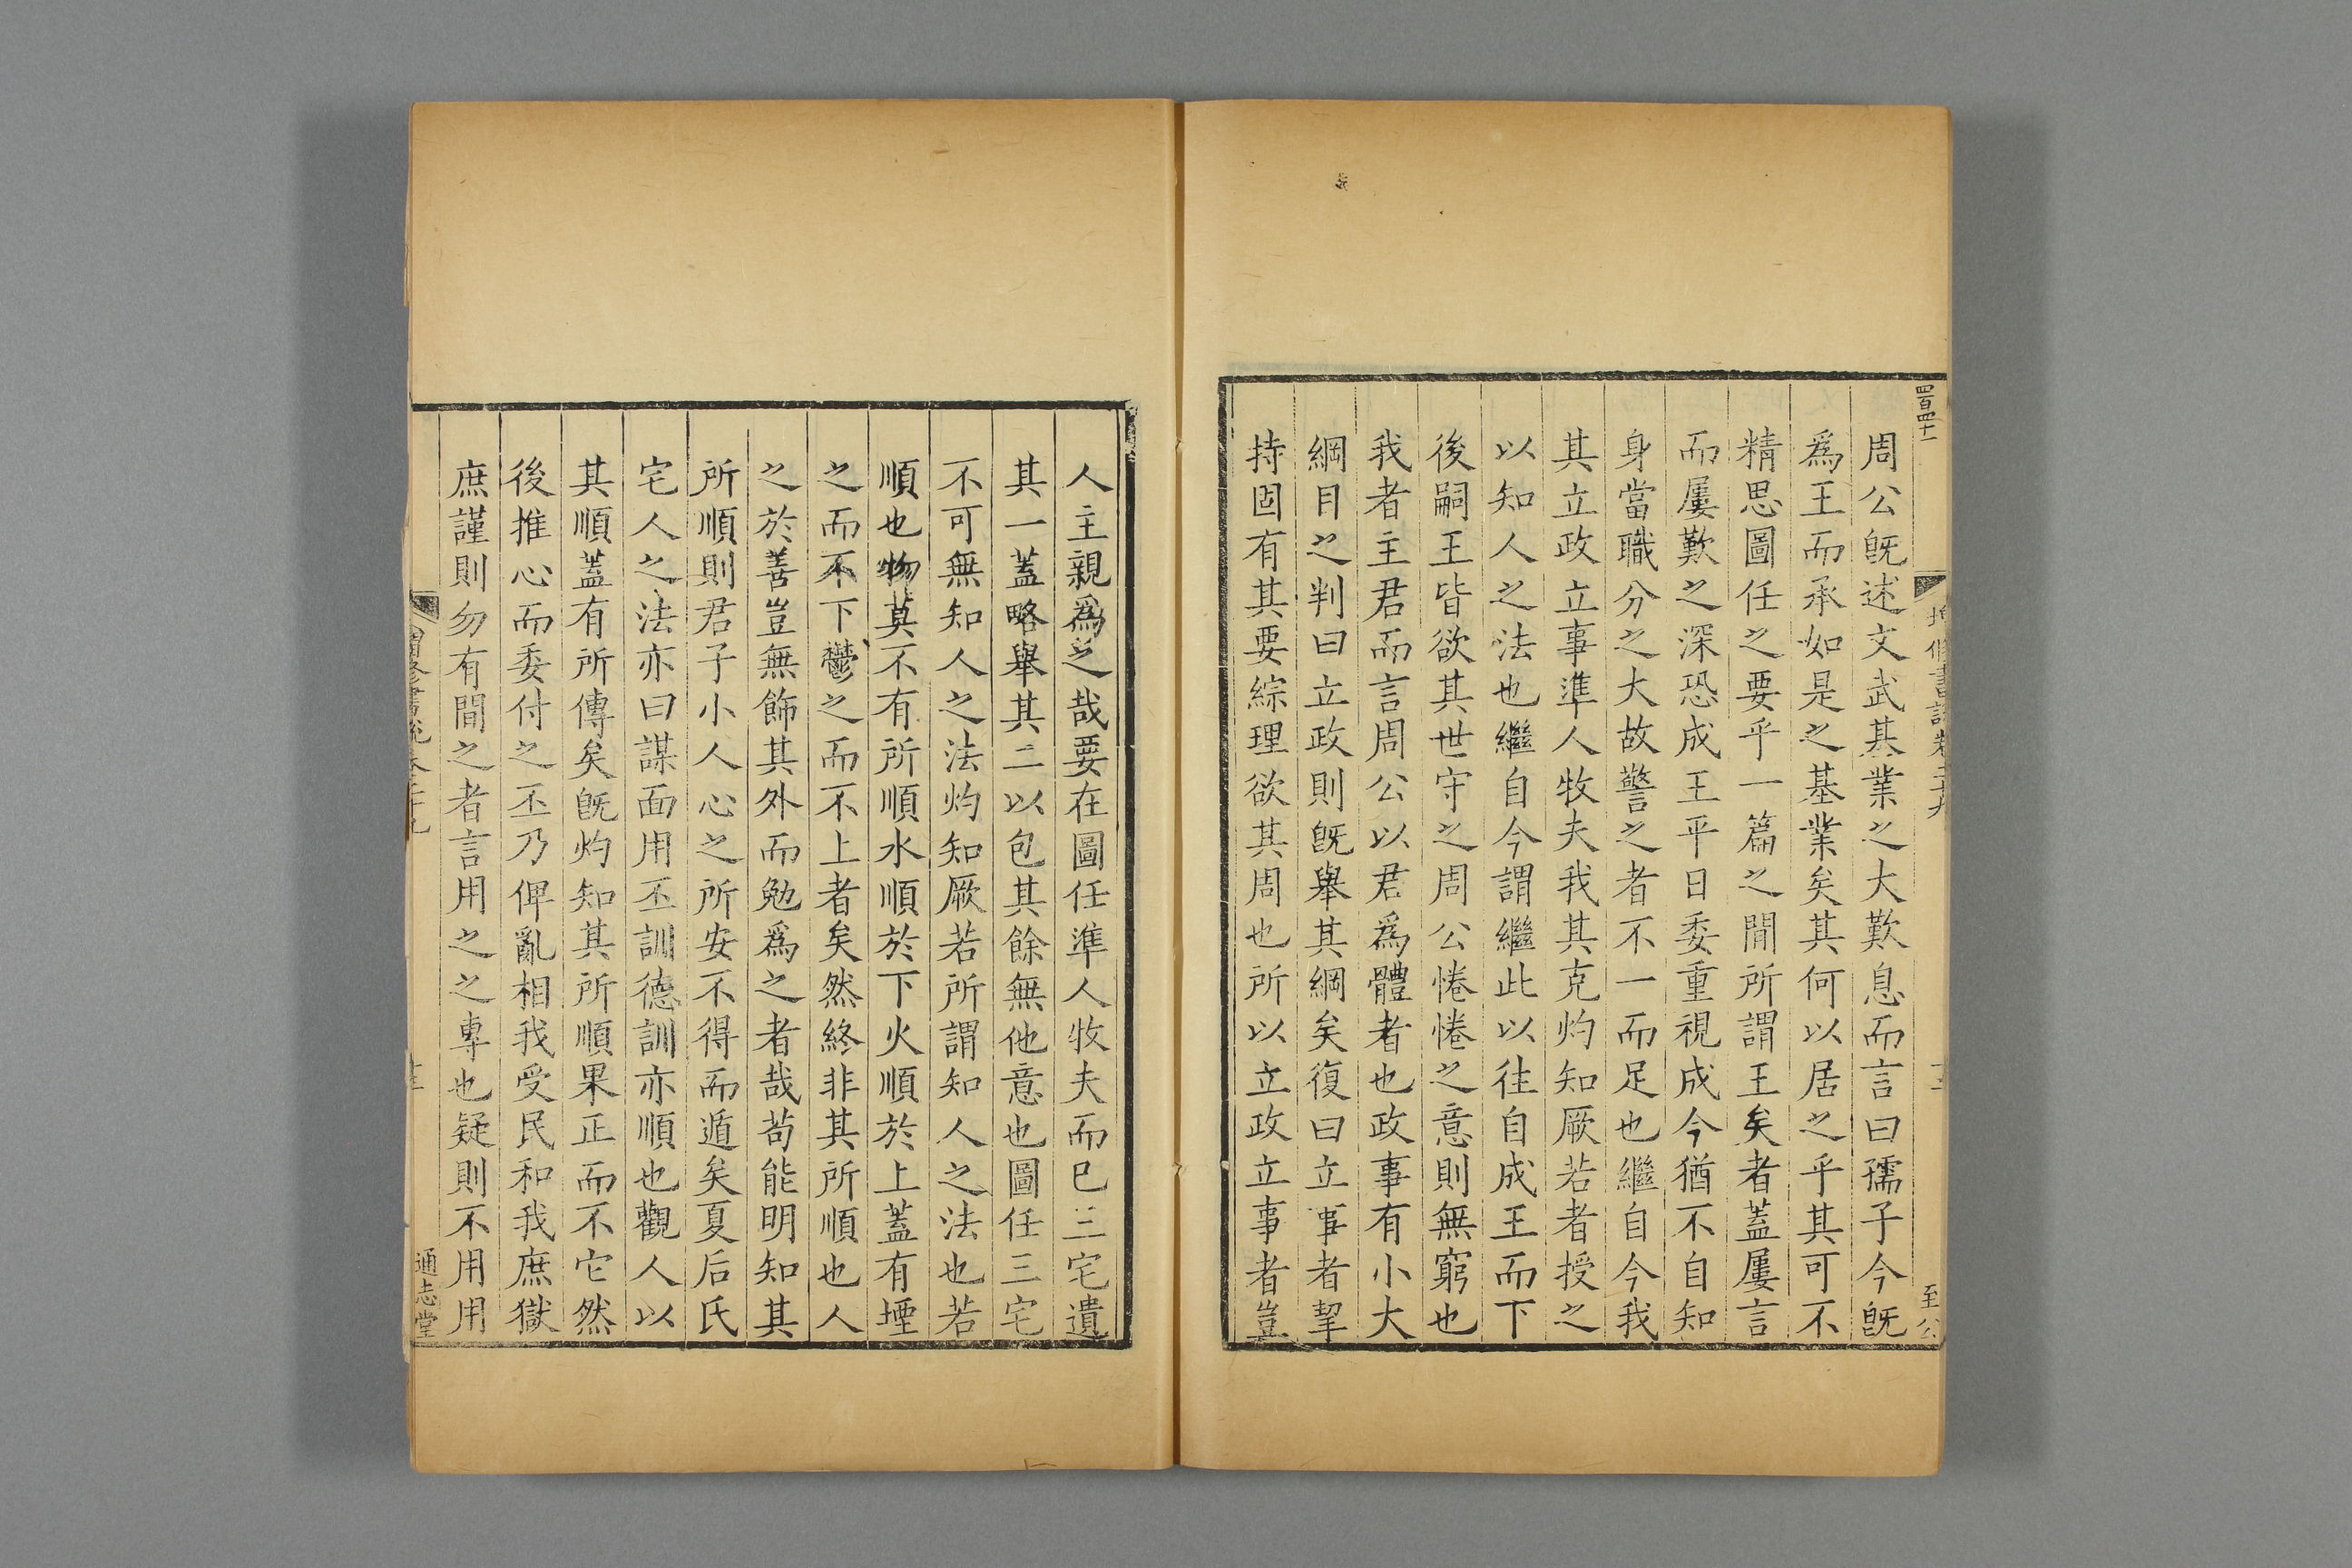 四百四十一
周公旣述文武基業之大歎息而言曰孺子今旣
爲王而承如是之基業矣其何以居之乎其可不
精思圖任之要乎一篇之間所謂王矣者蓋屢言
而屢歎之深恐成王平日委重視成今猶不自知
身當職分之大故警之者不一而足也繼自今我
其立政立事準人牧夫我其克灼知厥若者授之
以知人之法也繼自今謂繼此以往自成王而下
後嗣王皆欲其世守之周公惓惓之意則無窮也
我者主君而言周公以君爲體者也政事有小大
綱目之判曰立政則旣舉其綱矣復曰立事者挈
持固有其要綜理欲其周也所以立政立事者豈
書說卷二十九
十二
至公
人主親爲之哉要在圖任準人牧夫而已三宅遺
其一蓋略舉其二以包其餘無他意也圖任三宅
不可無知人之法灼知厥若所謂知人之法也若
順也物莫不有所順水順於下火順於上蓋有堙
之而不下鬱之而不上者矣然終非其所順也人
之於善豈無飾其外而勉爲之者哉苟能明知其
所順則君子小人心之所安不得而遁矣夏后氏
宅人之法亦曰謀面用丕訓德訓亦順也觀人以
其順蓋有所傳矣旣灼知其所順果正而不它然
後推心而委付之丕乃俾亂相我受民和我庶獄
庶謹則勿有間之者言用之之專也疑則不用用
通志堂